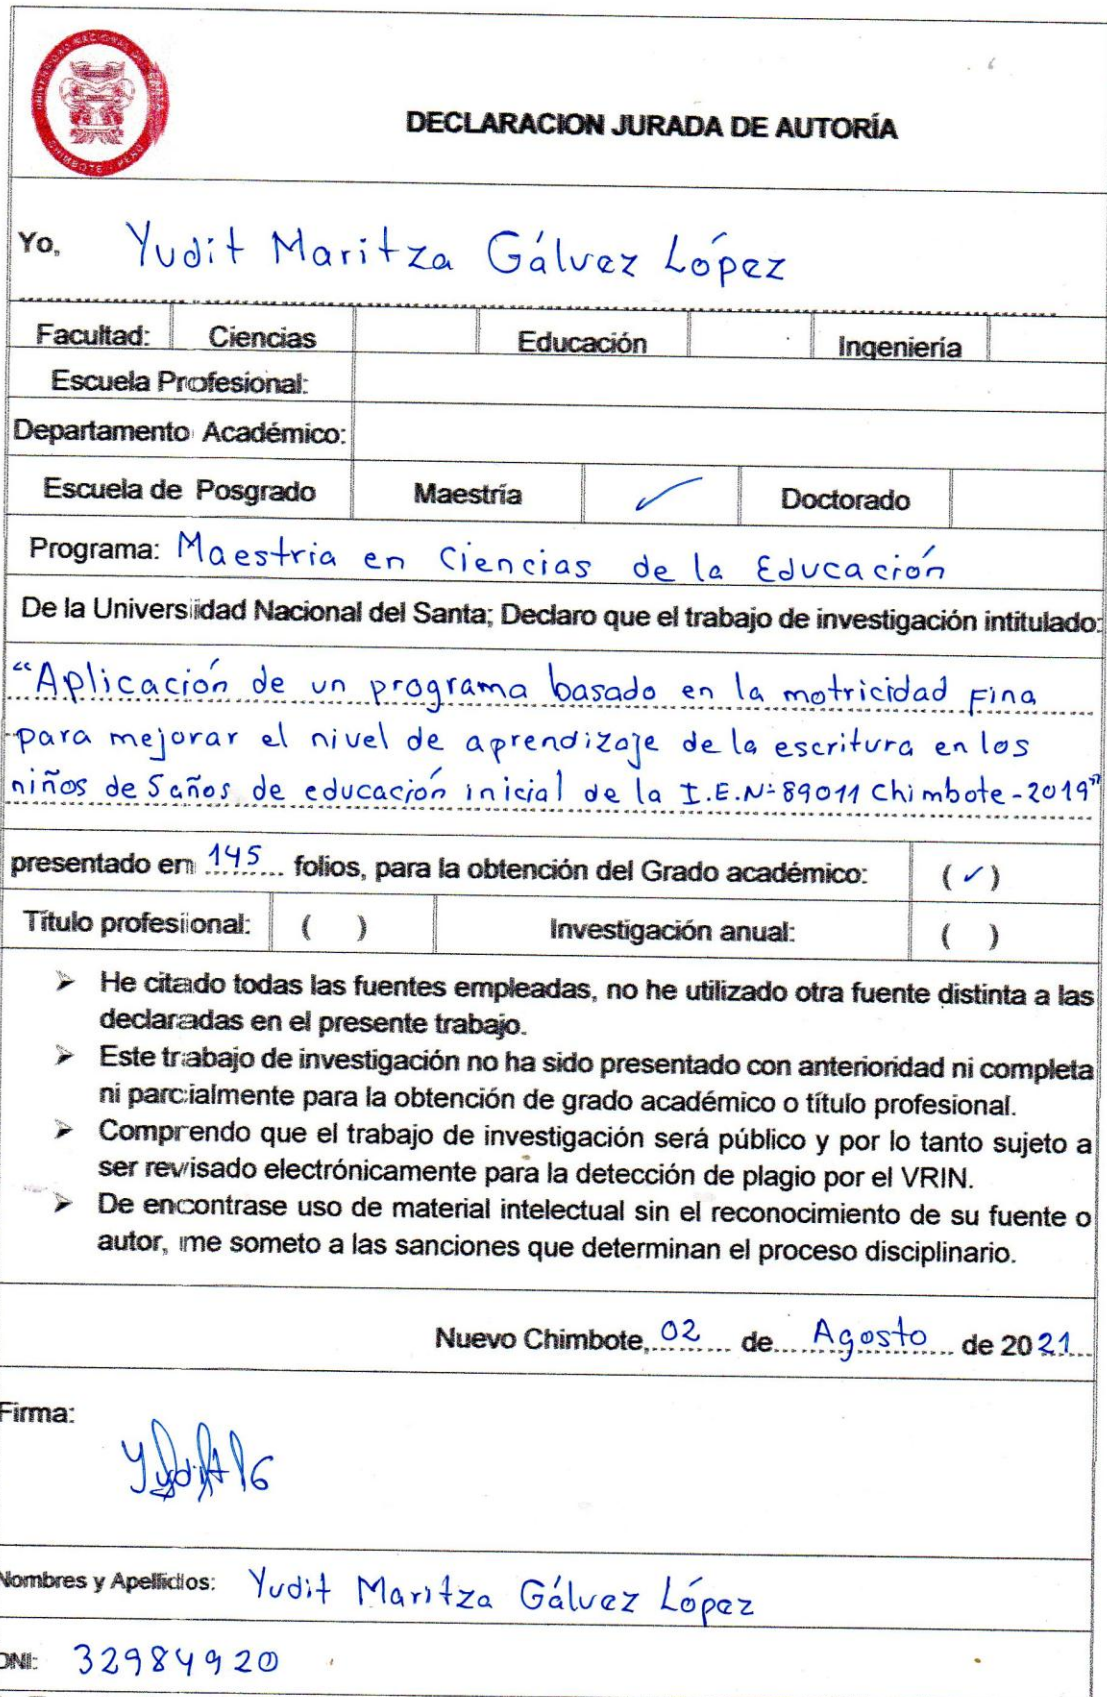 UNIVERSIDAD NACIONAL DEL SANTA
CHIMBOTE - PERÚ
DECLARACION JURADA DE AUTORÍA
Yo, Yudit Maritza Gálvez López
Facultad: Ciencias Educación Ingeniería
Escuela Profesional:
Departamento Académico:
Escuela de Posgrado Maestría ✓ Doctorado
Programa: Maestria en Ciencias de la Educación
De la Universidad Nacional del Santa; Declaro que el trabajo de investigación intitulado:
“Aplicación de un programa basado en la motricidad Fina
para mejorar el nivel de aprendizaje de la escritura en los
niños de 5 años de educación inicial de la I.E.Nº 89011 Chimbote-2019”
presentado en 145 folios, para la obtención del Grado académico: (✓)
Título profesional: ( ) Investigación anual: ( )
➢ He citado todas las fuentes empleadas, no he utilizado otra fuente distinta a las
declaradas en el presente trabajo.
➢ Este trabajo de investigación no ha sido presentado con anterioridad ni completa
ni parcialmente para la obtención de grado académico o título profesional.
➢ Comprendo que el trabajo de investigación será público y por lo tanto sujeto a
ser revisado electrónicamente para la detección de plagio por el VRIN.
➢ De encontrase uso de material intelectual sin el reconocimiento de su fuente o
autor, me someto a las sanciones que determinan el proceso disciplinario.
Nuevo Chimbote, 02 de Agosto de 2021
Firma:
Nombres y Apellidos: Yudit Maritza Gálvez López
DNI: 32984920